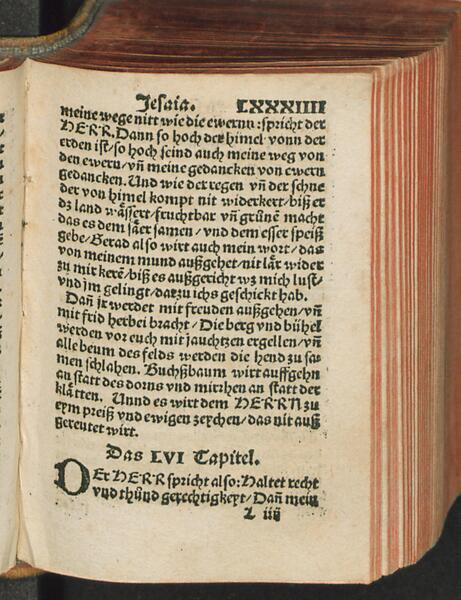 Jesaia. LXXXIIII
meine wege nitt wie die ewernn: spricht der
HERR. Dann so hoch der himel vonn der
erden ist/ so hoch seind auch meine weg von
den ewern/ vñ meine gedancken von ewern
gedancken. Und wie der regen vñ der schne
der von himel kompt nit widerkert/ biß er
dz land wässert/ fruchtbar vñ grünē macht
das es dem säer samen/ vnd dem esser speiß
gebe/ Gerad also wirt auch mein wort/ das
von meinem mund außgehet/ nit lär wider
zu mir kerē/ biß es außgericht wz mich lust/
vnd jm gelingt/ darzu ichs geschickt hab.
Dañ jr werdet mit freuden außgehen/ vñ
mit frid herbei bracht/ Die berg vnd bühel
werden vor euch mit jauchtzen ergellen/ vñ
alle beum des felds werden die hend zu sa-
men schlahen. Buchßbaum wirt auffgehn
an statt des dorns vnd mirrhen an statt der
klätten. Unnd es wirt dem HERRN zu
eym preiß vnd ewigen zeychen/ das nit auß
gereutet wirt.
Das LVI Capitel.
DEr HERR spricht also: Haltet recht
vnd thünd gerechtigkeyt/ Dañ mein
L iiij